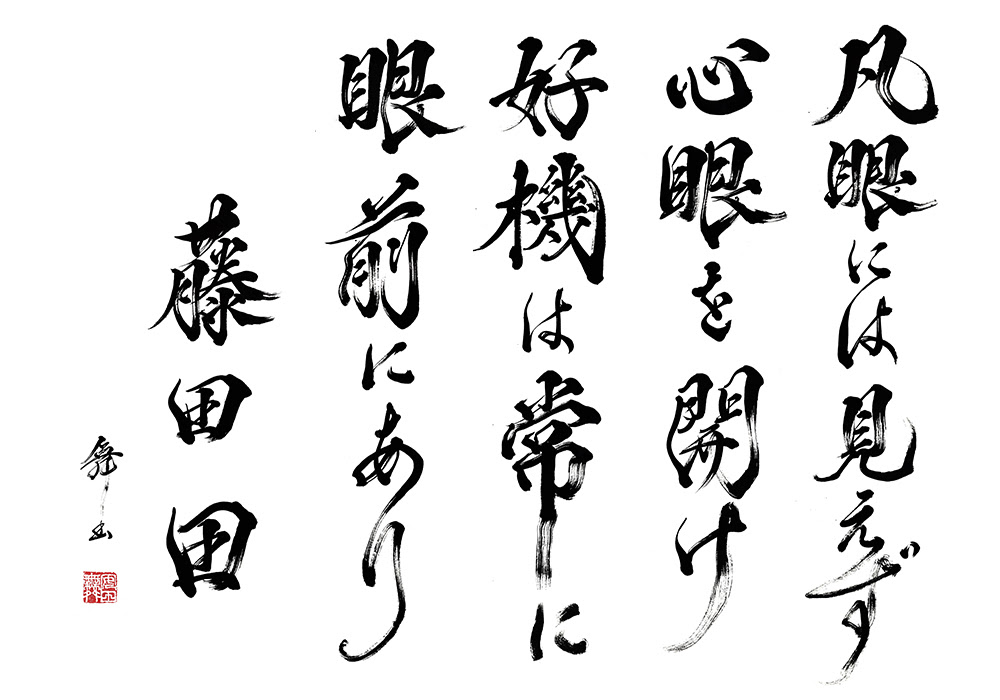 凡眼には見えず
心眼を開け
好機は常に
眼前にあり
藤田田